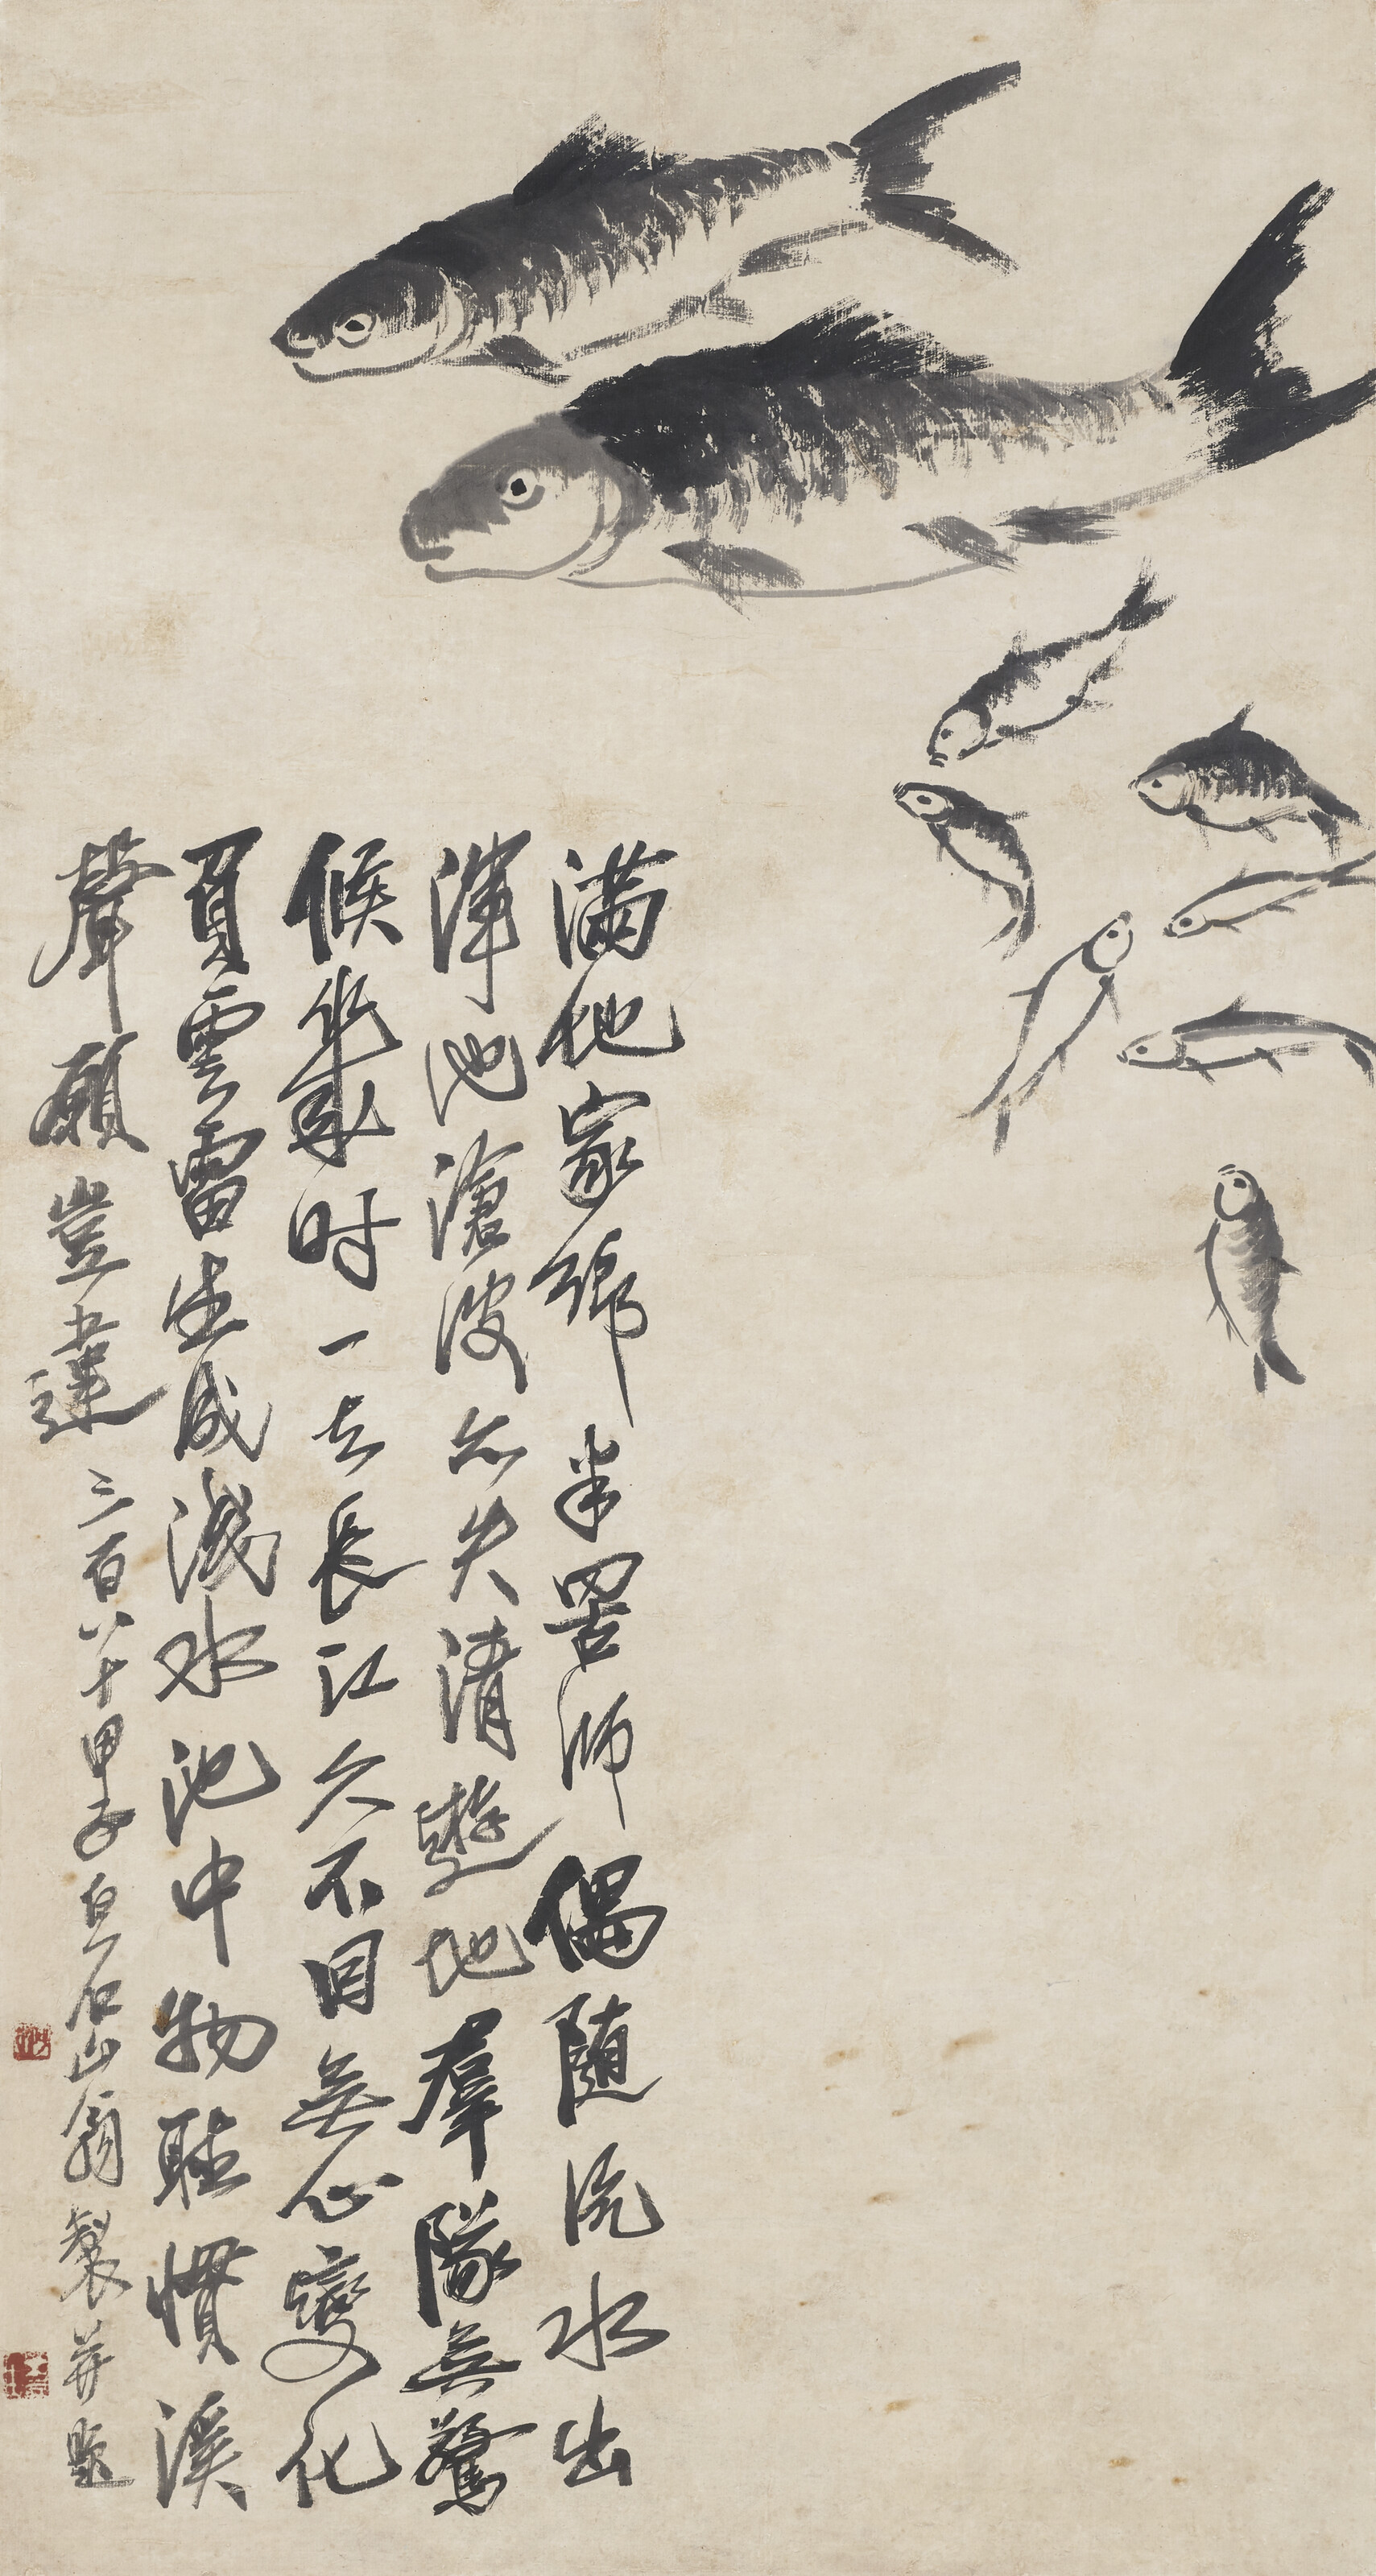 满地家鄉半罟師偶隨流水出
渾池滄波亦失清遊地羣隊無驚
候幾时一去長江久不回無心變化
負雲雷生成淺水池中物聽慣溪
聲願豈違 三百八十甲子白石山翁製并題